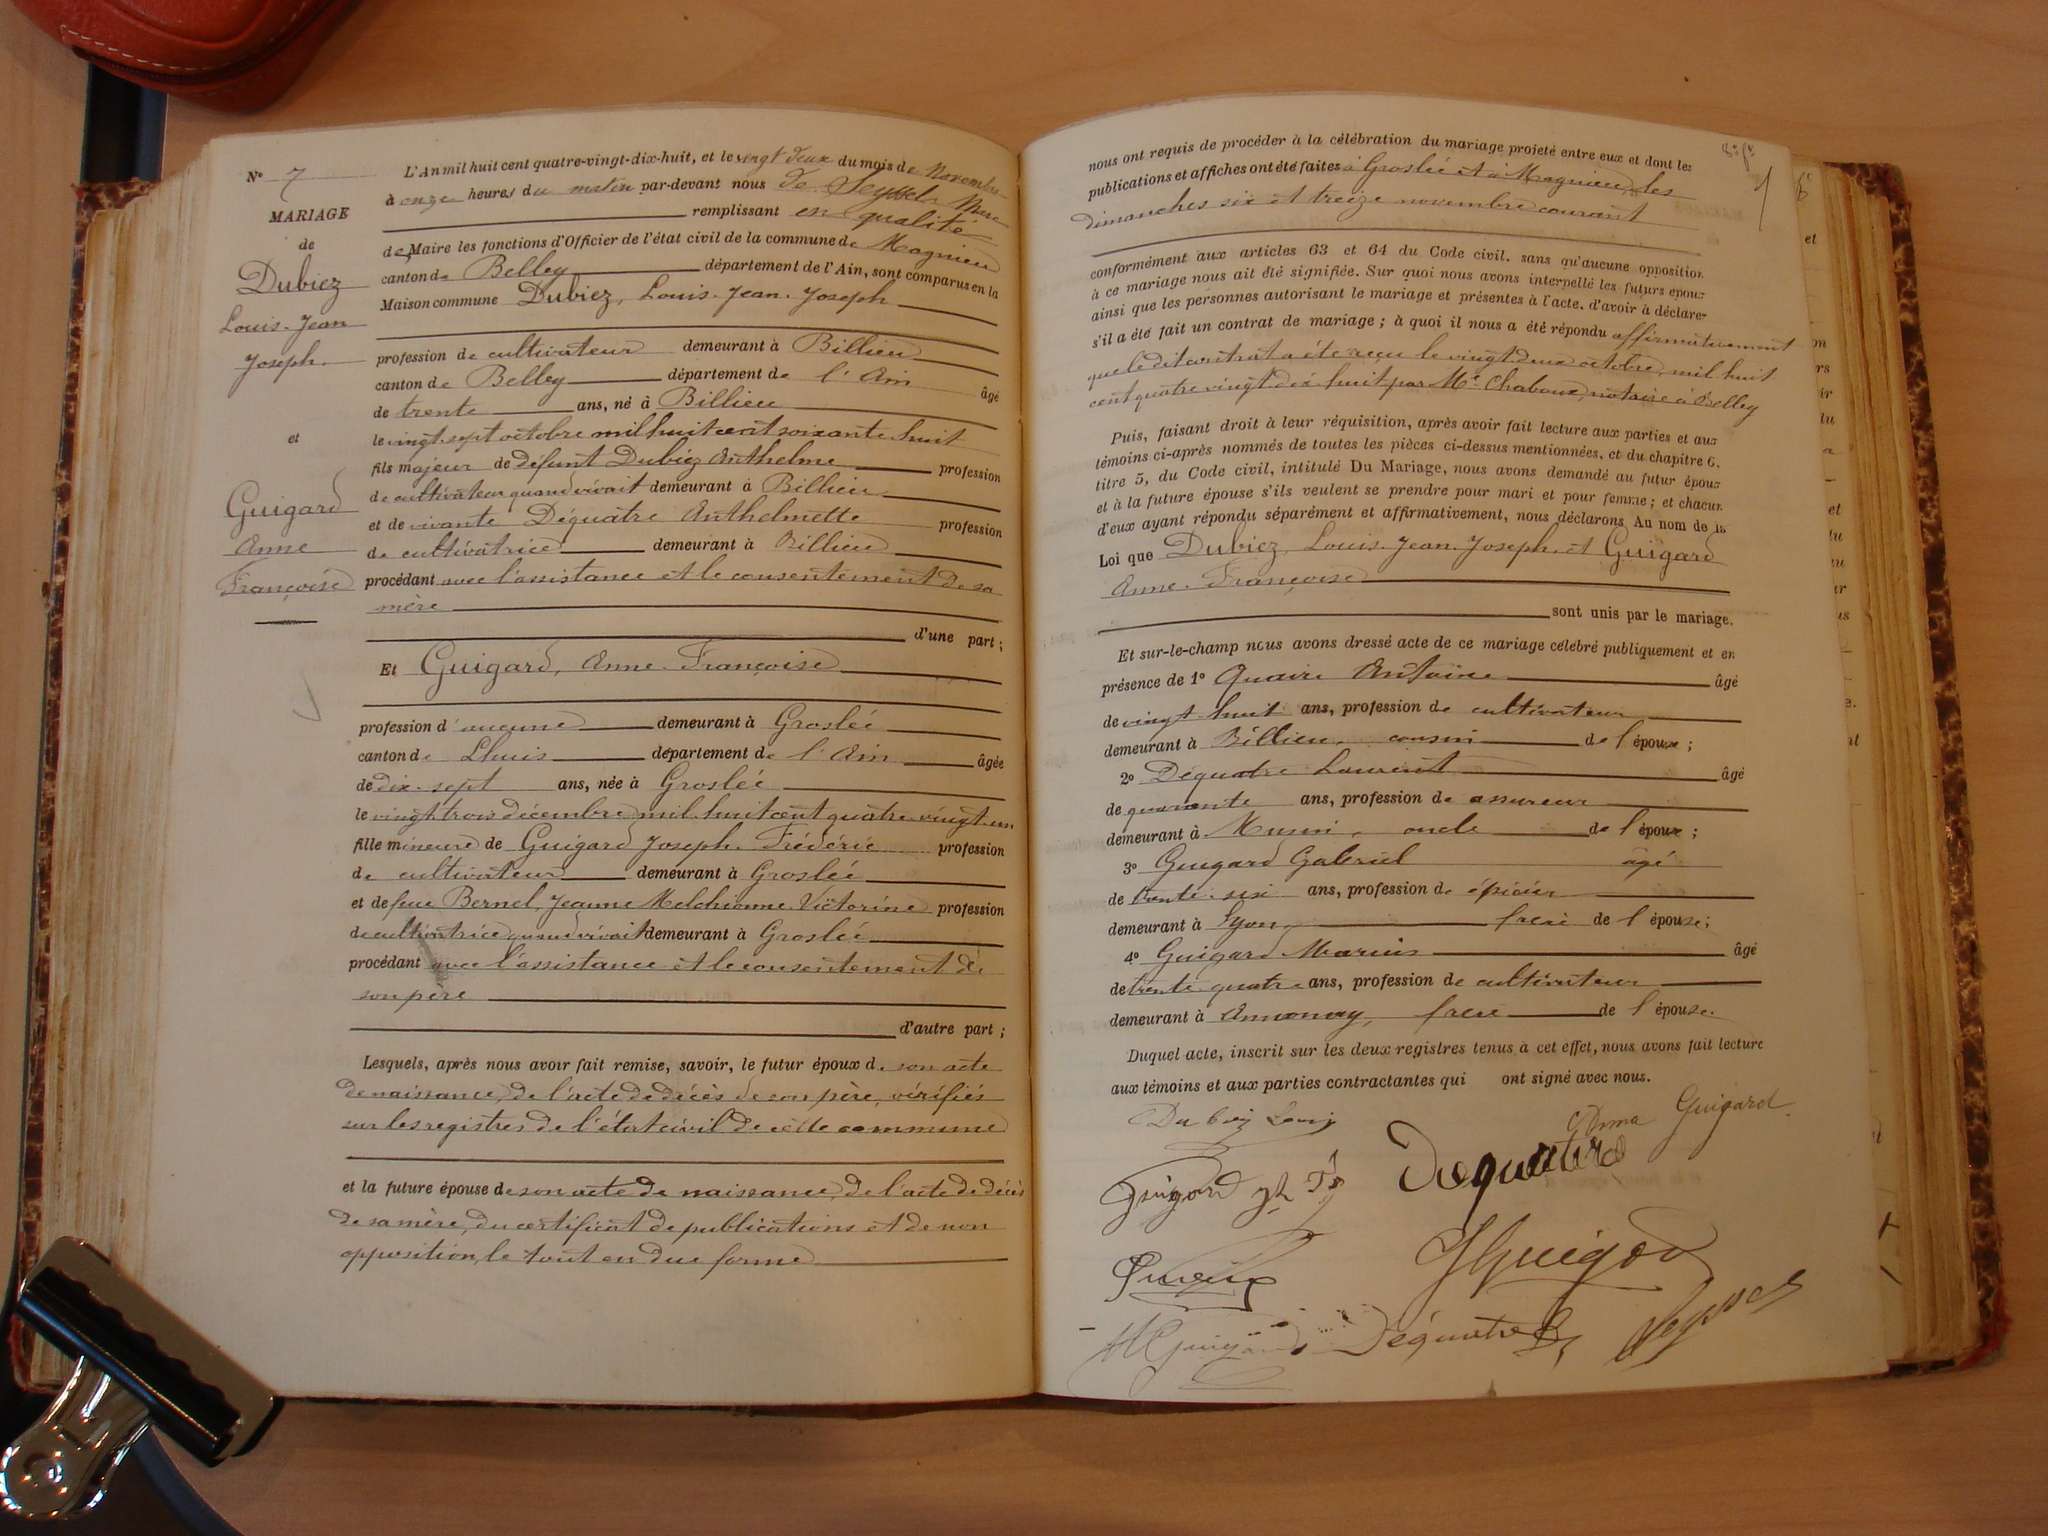 N° 7
MARIAGE
de
Dubiez
Louis-Jean
Joseph
et
Guigard
Anne
Françoise
L'An mil huit cent quatre-vingt-dix-huit, et le vingt deux du mois de Novembre
à onze heures du matin par-devant nous de Seyssel, Maire
remplissant en qualité
de Maire les fonctions d'Officier de l'état civil de la commune de Magnieu
canton de Belley département de l'Ain, sont comparus en la
Maison commune Dubiez, Louis-Jean-Joseph
profession de cultivateur demeurant à Billieu
canton de Belley département de l'Ain âgé
de trente ans, né à Billieu
le vingt-sept octobre mil huit cent soixante huit
fils majeur de défunt Dubiez Anthelme profession
de cultivateur quand vivait demeurant à Billieu
et de vivante Déquatre Anthelmette profession
de cultivatrice demeurant à Billieu
procédant avec l'assistance et le consentement de sa
mère
d'une part;
Et Guigard, Anne-Françoise
profession d'aucune demeurant à Groslée
canton de Lhuis département de l'Ain âgée
de dix-sept ans, née à Groslée
le vingt-trois décembre mil huit cent quatre-vingt-un
fille mineure de Guigard Joseph-Frédéric profession
de cultivateur demeurant à Groslée
et de feue Bernel, Jeanne Melchionne Victorine profession
de cultivatrice quand vivait demeurant à Groslée
procédant avec l'assistance et le consentement de
son père
d'autre part;
Lesquels, après nous avoir fait remise, savoir, le futur époux de son acte
de naissance, de l'acte de décès de son père, vérifiés
sur les registres de l'état civil de cette commune
et la future épouse de son acte de naissance, de l'acte de décès
de sa mère, du certificat de publications et de non
opposition, le tout en due forme
nous ont requis de procéder à la célébration du mariage projeté entre eux et dont les
publications et affiches ont été faites à Groslée et à Magnieu, les
dimanches six et treize novembre courant
conformément aux articles 63 et 64 du Code civil, sans qu'aucune opposition
à ce mariage nous ait été signifiée. Sur quoi nous avons interpellé les futurs époux
ainsi que les personnes autorisant le mariage et présentes à l'acte, d'avoir à déclarer
s'il a été fait un contrat de mariage; à quoi il nous a été répondu affirmativement
que le dit contrat a été reçu le vingt deux octobre, mil huit
cent quatre vingt dix huit par Me Chaboux, notaire à Belley
Puis, faisant droit à leur réquisition, après avoir fait lecture aux parties et aux
témoins ci-après nommés de toutes les pièces ci-dessus mentionnées, et du chapitre 6,
titre 5, du Code civil, intitulé Du Mariage, nous avons demandé au futur époux
et à la future épouse s'ils veulent se prendre pour mari et pour femme; et chacun
d'eux ayant répondu séparément et affirmativement, nous déclarons Au nom de la
Loi que Dubiez, Louis-Jean-Joseph et Guigard
Anne-Françoise
sont unis par le mariage.
Et sur-le-champ nous avons dressé acte de ce mariage célébré publiquement et en
présence de 1° Antoine âgé
de vingt huit ans, profession de cultivateur
demeurant à Billieu, cousin de l'époux;
2° Déquatre Laurent âgé
de quarante ans, profession de assureur
demeurant à oncle de l'époux;
3° Guigard Gabriel âgé
de trente-six ans, profession de épicier
demeurant à Lyon, frère de l'épouse;
4° Guigard Marius âgé
de trente quatre ans, profession de cultivateur
demeurant à Annonay, frère de l'épouse.
Duquel acte, inscrit sur les deux registres tenus à cet effet, nous avons fait lecture
aux témoins et aux parties contractantes qui ont signé avec nous.
Dubiez Louis
Anna Guigard
Guigard
Dequatre
Guigard
Guigard
Déquatre
Seyssel